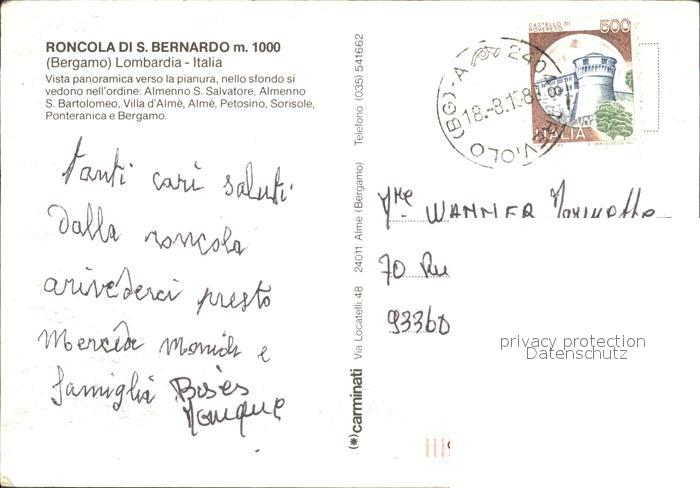 RONCOLA DI S. BERNARDO m. 1000
(Bergamo) Lombardia - Italia
Vista panoramica verso la pianura, nello sfondo si
vedono nell'ordine: Almenno S. Salvatore, Almenno
S. Bartolomeo, Villa d'Almè, Almè, Petosino, Sorisole,
Ponteranica e Bergamo.
tanti cari saluti
dalla roncola
arivederci presto
e
famiglia Bises
Monique
(*) carminati Via Locatelli, 48 24011 Almè (Bergamo) Telefono (035) 541662
CASTELLO DI
ROVERETO
500
ITALIA
18.-8.1
(BG)-A
WANNER
70 Ru
93360
privacy protection
Datenschutz